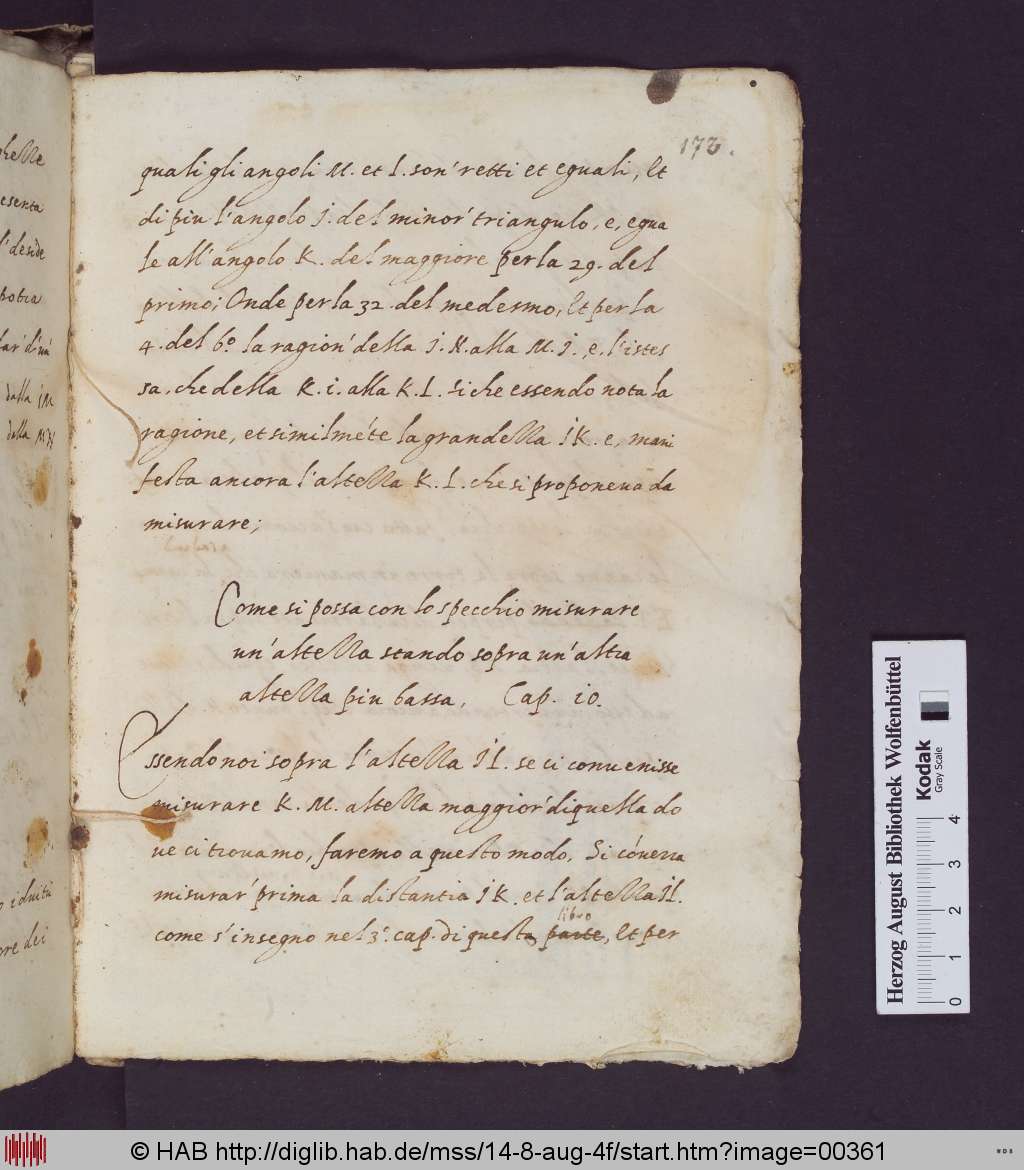 helle
esenta
l'deside
potra
lar' d'un'
dalla iM
dalla M N
idnitu
ore dei
172.
quali gli angoli M. et L. son' retti et eguali, Et
di piu l'angolo J. del minor' triangulo, e, egua
le all'angolo K. del maggiore per la 29. del
primo; Onde per la 32. del medesmo, Et per la
4. del 6º. la ragion' della J. N. alla M. J. e. l'istes
sa, che della K. i. alla K. L. Si che essendo nota la
ragione, et similmẽte la grandezza JK. e, mani
festa ancora l'altezza K. L. che si proponeua da
misurare;
Come si possa con lo specchio misurare
un'altezza stando sopra un'altra
altezza piu bassa, Cap. 10.
Essendo noi sopra l'altezza JL. se ci conuenisse
misurare K. M. altezza maggior' di quella do
ue ci trouamo, faremo a questo modo. Si cõuerra
misurar' prima la distantia JK. et l'altezza JL.
libro
come s'insegno nel 3º. cap. di questa parte, Et per
Herzog August Bibliothek Wolfenbüttel
Kodak
Gray Scale
0 1 2 3 4
© HAB http://diglib.hab.de/mss/14-8-aug-4f/start.htm?image=00361